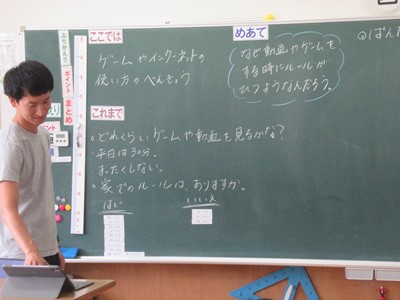 ここでは
ゲームやインターネットの
使い方のべんきょう
めあて
なぜ動画やゲームを
する時にルールが
ひつようなんだろう。
これまで
どれくらいゲームや動画を見るかな?
平日は30分。
まったくしない。
家でのルールは、ありますか。
はい
いいえ
ふりかえり
ポイント
まとめ